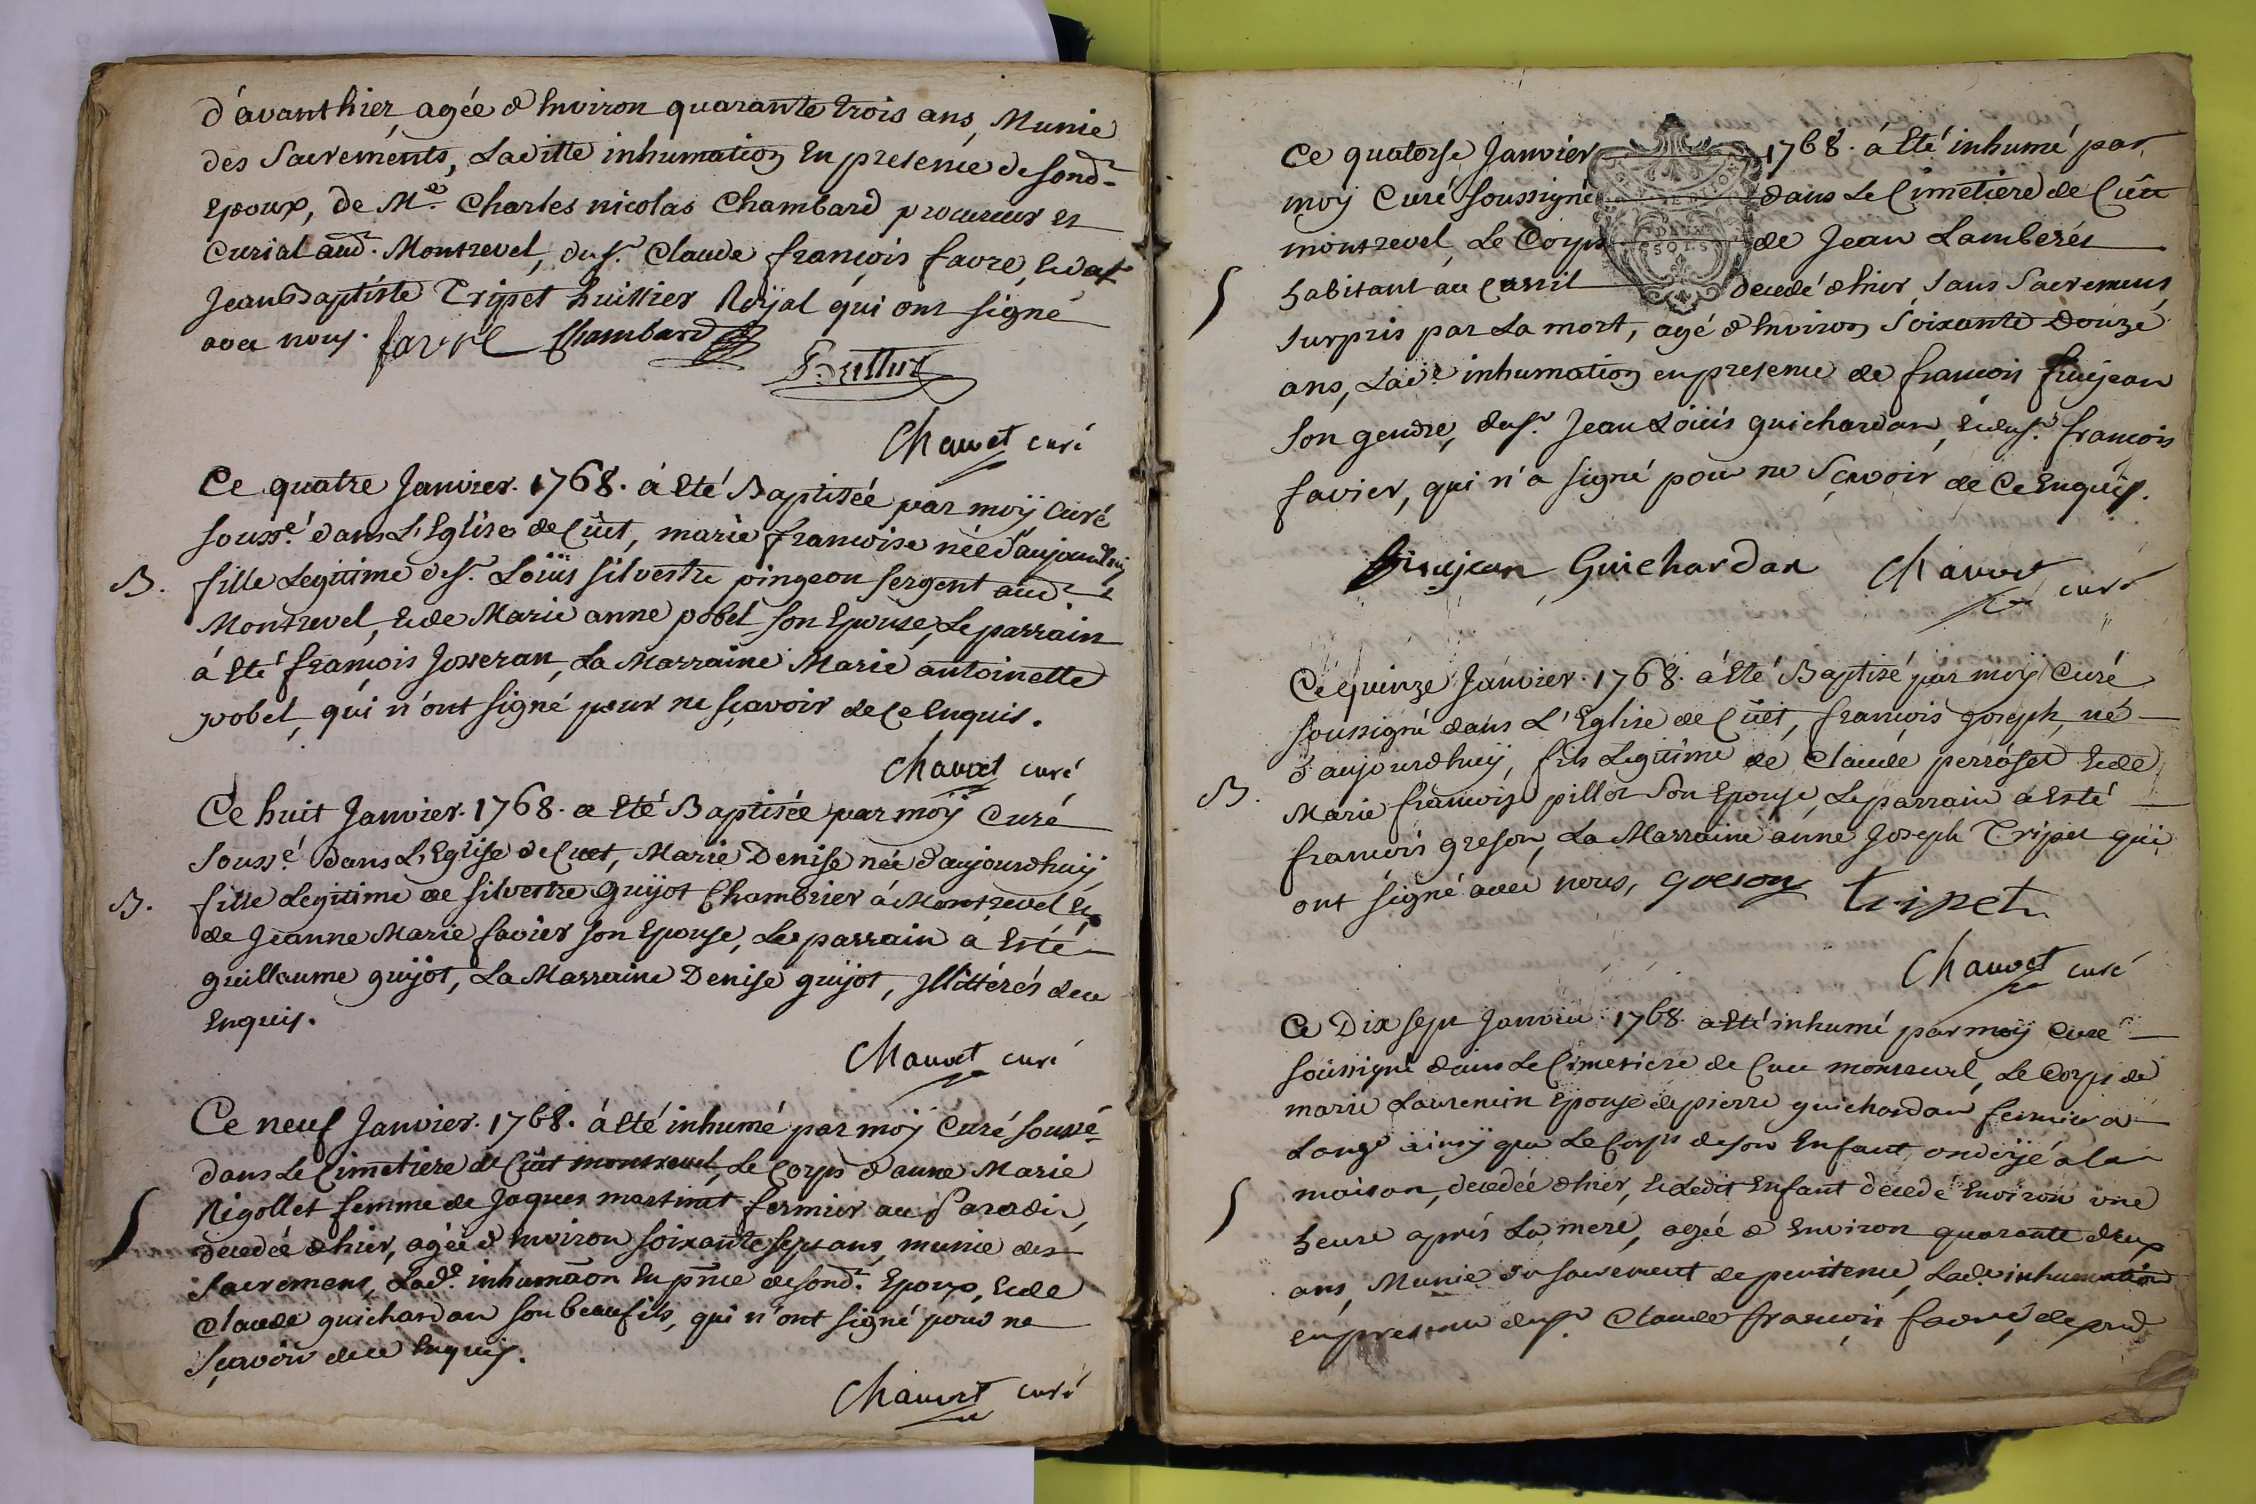 d'avant hier, agée d'Environ quarante trois ans, Munie
des Sacrements, Laditte inhumation En presence de sond.
Epoux, de Me. Charles nicolas Chambard procureur et
Curial aud. Montrevel, du sr. Claude françois favre, Et de
Jean Baptiste Tripet huissier Royal qui ont signé
avec nous. favre Chambard
Chauvet curé
Ce quatre Janvier. 1768. à Eté Baptisée par moÿ Curé
souss.é dans L'Eglise de Cüet, marie francoise née d'aujourdhuy
B. fille Legitime de sr. Loüis silvestre pingeon sergent aud.
Montrevel, Et de Marie anne pobel son Epouse, Le parrain
à Eté françois Josseran, La Marraine Marie antoinette
pobel, qui n'ont signé pour ne sçavoir de ce Enquis.
Chauvet curé
Ce huit Janvier. 1768. a Eté Baptisée par moÿ Curé
souss.é dans L'Eglise de Cuet, Marie Denise née d'aujourdhuÿ
B. fille Legitime de silvestre Guÿot Chambrier à Montrevel Et
de Jeanne Marie favier son Epouse, Le parrain a Esté
guillaume guÿot, La Marraine Denise guijot, Jllittérés de ce
Enquis.
Chauvet curé
Ce neuf Janvier. 1768. à Eté inhumé par moÿ Curé souss.é
dans Le Cimetiere de Cüet montrevel, Le Corps d'anne Marie
Rigollet femme de Jaques martinet fermier au Paradis,
S decedée d'hier, agée d'Environ soixante sept ans, munie des
sacremens, Lade. inhumaõn En pñce de sond. Epoux, Et de
Claude guichardan son beaufils, qui n'ont signé pour ne
sçavoir de ce Enquis.
Chauvet curé
Ce quatorse Janvier 1768. à Eté inhumé par
moÿ Curé soussigné dans Le Cimetiere de Cüet
montrevel, Le Corps de Jean Lamberét
DEUX
SOLS
S habitant au Curtil decedé d'hier sans sacremens
surpris par La mort, agé d'Environ soixante Douze
ans, Lade. inhumation en presence de francois
son gendre, du sr. Jean Loüis guichardan, Et du sr. francois
favier, qui n'a signé pour ne sçavoir de Ce Enquis.
Guichardan Chauvet curé
Ce quinze Janvier. 1768. à Eté Baptisé par moÿ Curé
soussigné dans L'Eglise de Cüet, françois Joseph, né
d'aujourdhuÿ, fils Legitime de Claude perroset Et de
B. Marie francoise pillot son Epouse, Le parrain a Esté
françois greson, La Marraine anne Joseph Tripet qui
ont signé avec nous, greson tripet
Chauvet curé
Ce Dix sept Janvier 1768. a Eté inhumé par moÿ Curé
soussigné dans Le Cimetiere de Cuet montrevel, Le Corps de
marie Laurencin Epouse de pierre guichardan fermier a
ainsÿ que Le Corps de son Enfant, ondoÿé a la
S maison, decedée d'hier, Et Ledit Enfant decedé Environ une
heure aprés La mere, agée d'Environ quarante deux
ans, Munie du sacrement de penitence, Lade. inhumation
en presence du sr. Claude françois favre, de